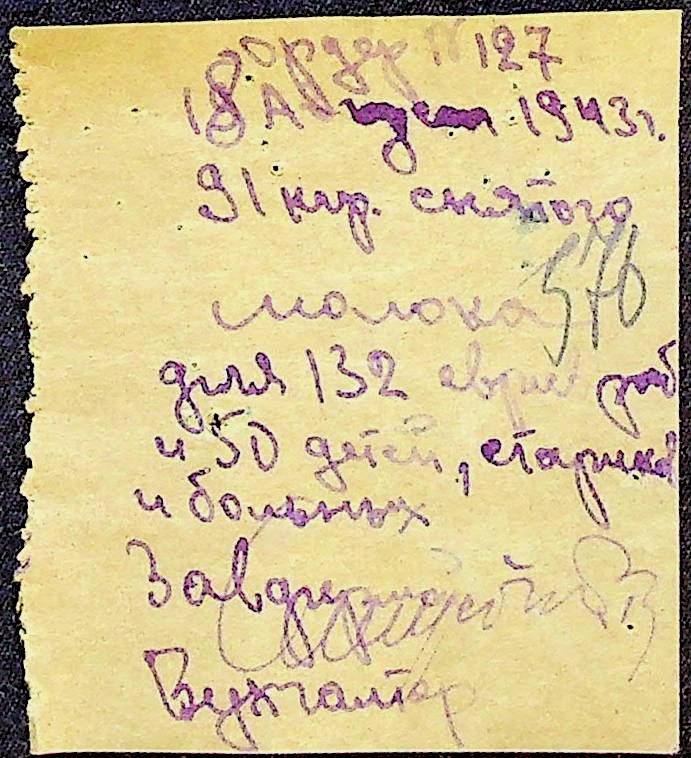 Ордер N 127
18 Август 1943 г.
91 кгр. снятого
576
молока
для 132 евреев раб
и 50 детей, стариков
и больных
Завдер
Бухгалтер